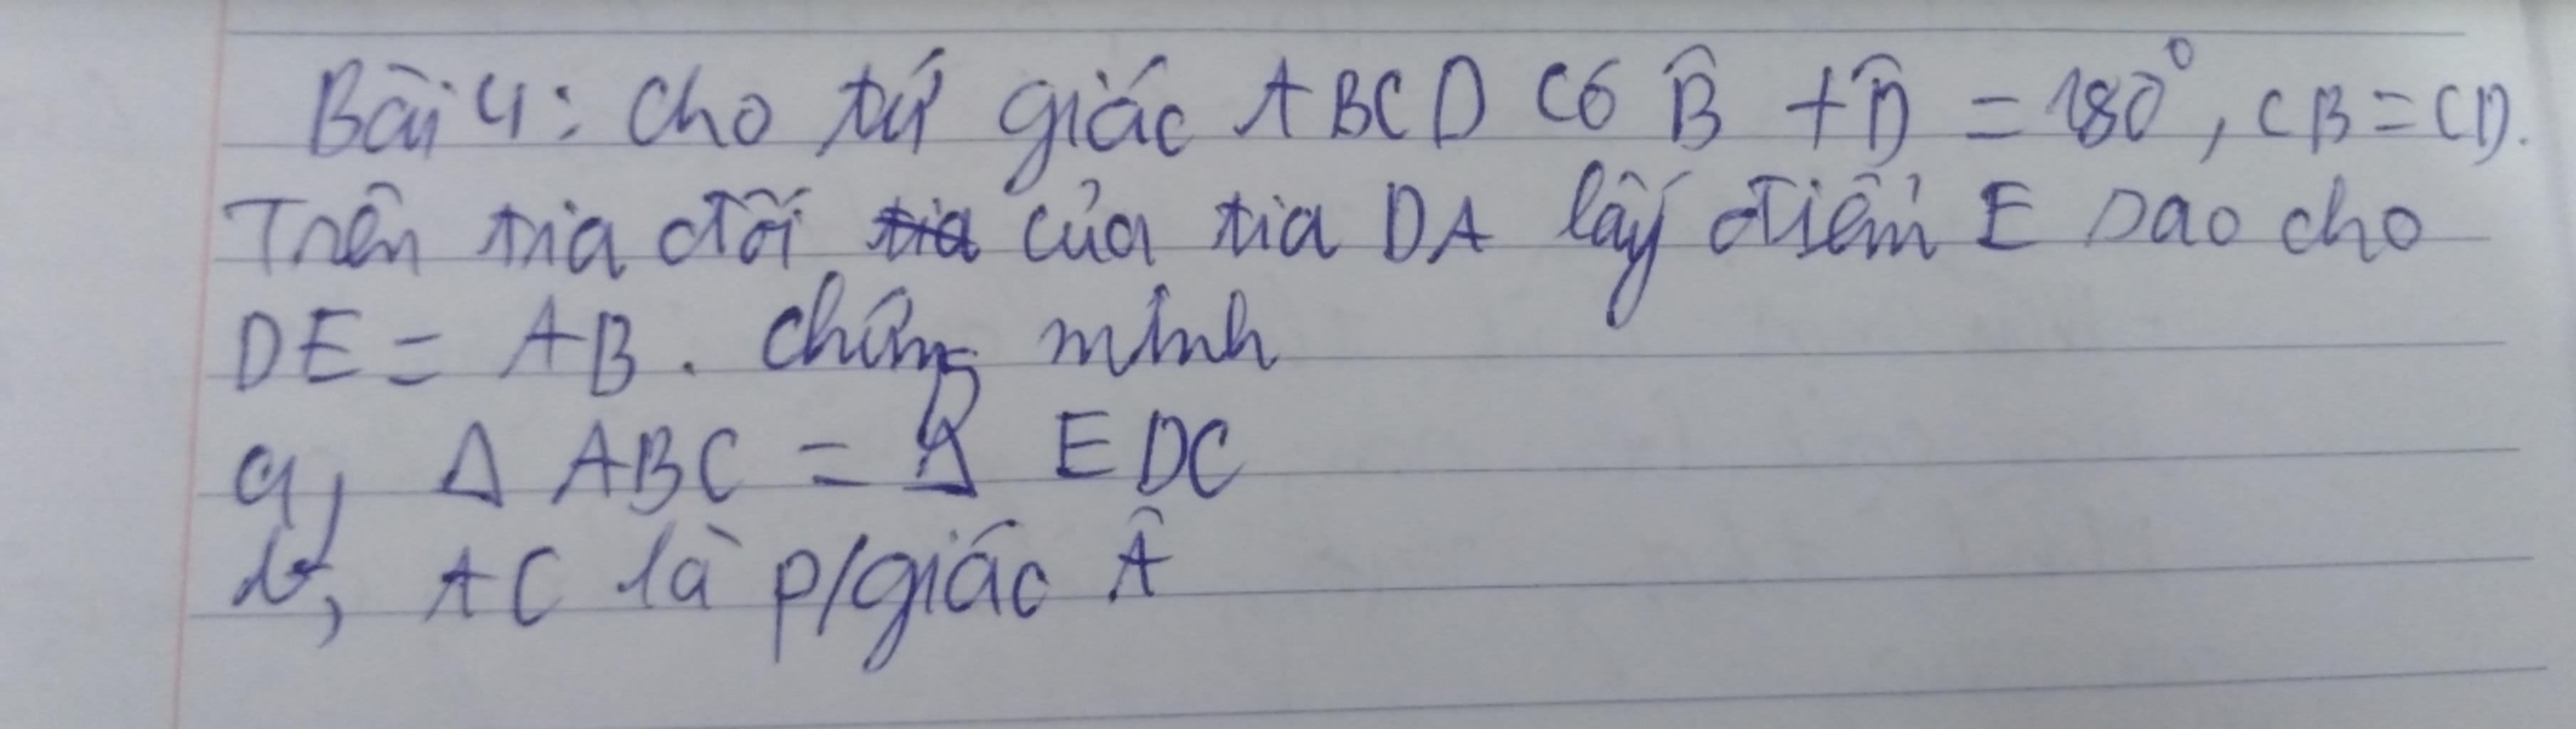 Bài 4: Cho tứ giác ABCD có B̂ + D̂ = 180°, CB = CD.
Trên tia đối tia của tia DA lấy điểm E sao cho
DE = AB. Chứng minh
a, Δ ABC = Δ EDC
b, AC là p/giác Â